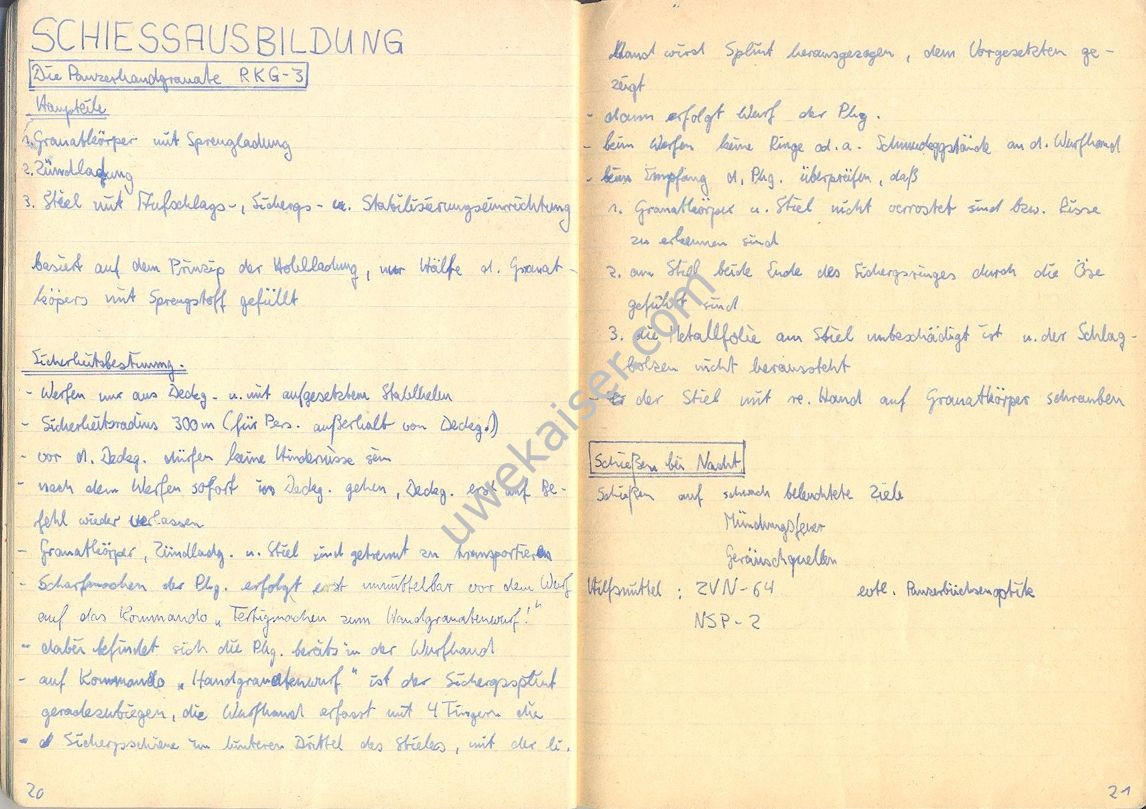 SCHIESSAUSBILDUNG
Die Panzerhandgranate RKG-3
Hauptteile
1. Granatkörper mit Sprengladung
2. Zündladung
3. Stiel mit Aufschlags-, Sichergs- u. Stabilisierungseinrichtung
basiert auf dem Prinzip der Hohlladung, nur Hälfte d. Granat-
köpers mit Sprengstoff gefüllt
Sicherheitsbestimmung.
- Werfen nur aus Deckg. u. mit aufgesetztem Stahlhelm
- Sicherheitsradius 300 m (für Pers. außerhalb von Deckg.!)
- vor d. Deckg. dürfen keine Hindernisse sein
- nach dem Werfen sofort in Deckg. gehen, Deckg. erst auf Be-
fehl wieder verlassen
- Granatkörper, Zündladg. u. Stiel sind getrennt zu transportieren
- Scharfmachen der Phg. erfolgt erst unmittelbar vor dem Wurf
auf das Kommando „Fertigmachen zum Handgranatenwurf!"
- dabei befindet sich die Phg. bereits in der Wurfhand
- auf Kommando „Handgranatenwurf" ist der Sichergssplint
geradezubiegen, die Wurfhand erfasst mit 4 Fingern die
- Sichergsschiene im unteren Drittel des Stieles, mit der li.
20
Hand wird Splint herausgezogen, dem Vorgesetzten ge-
zeigt
- dann erfolgt Wurf der Phg.
- beim Werfen keine Ringe od. a. Schmuckggstände an d. Wurfhand
- beim Empfang d. Phg. überprüfen, daß
1. Granatkörper u. Stiel nicht verrostet sind bzw. Risse
zu erkennen sind
2. am Stiel beide Ende des Sichergsringes durch die Öse
geführt sind
3. die Metallfolie am Stiel unbeschädigt ist u. der Schlag-
bolzen nicht heraussteht
- der Stiel mit re. Hand auf Granatkörper schrauben
Schießen bei Nacht
Schießen auf schwach beleuchtete Ziele
Mündungsfeuer
Geräuschquellen
Hilfsmittel: ZVN-64 evtl. Panzerbüchsenoptik
NSP-2
21
uwekaiser.com